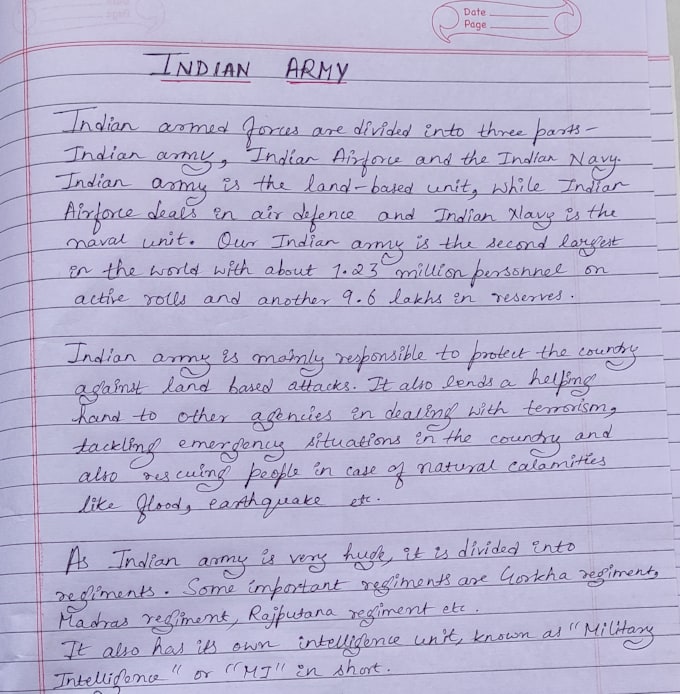 Date
Page
INDIAN ARMY
Indian armed forces are divided into three parts-
Indian army, Indian Airforce and the Indian Navy.
Indian army is the land-based unit, while Indian
Airforce deals in air defence and Indian Navy is the
naval unit. Our Indian army is the second largest
in the world with about 1.23 million personnel on
active rolls and another 9.6 lakhs in reserves.
Indian army is mainly responsible to protect the country
against land based attacks. It also lends a helping
hand to other agencies in dealing with terrorism,
tackling emergency situations in the country and
also rescuing people in case of natural calamities
like flood, earthquake etc.
As Indian army is very huge, it is divided into
regiments. Some important regiments are Gorkha regiment,
Madras regiment, Rajputana regiment etc.
It also has its own intelligence unit, known as "Military
Intelligence" or "MI" in short.